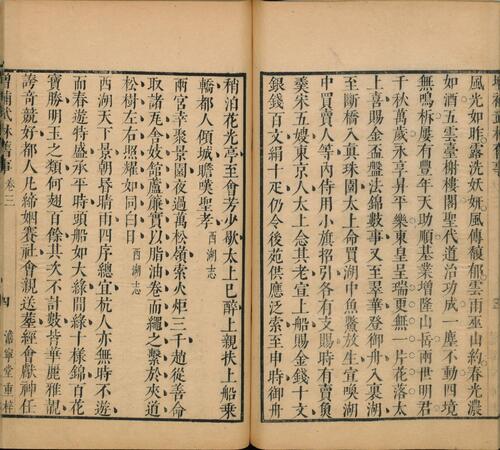 風光如昨露洗妖妍風傳馥郁雲雨巫山約春光濃
如酒五雲臺榭樓閣聖代道洽功成一塵不動四境
無鳴柝屢有豐年天助順基業增隆山岳兩世明君
千秋萬歲永享昇平樂東皇呈瑞更無一片花落太
上喜賜金盃盤法錦數事又至翠華登御舟入裏湖
至斷橋入眞珠園太上命買湖中魚鱉放生宣喚湖
中買賣人等內侍用小旗招引各有支賜時有賣魚
羹宋五嫂東京人太上念其老宣上船賜金錢十文
銀錢百文絹十疋仍令後苑供應泛索至申時御舟
稍泊花光亭至會芳少歇太上已醉上親扶上船乗
轎都人傾城贍嘆聖孝 西湖志
兩宮幸聚景園夜過萬松嶺索火炬三千趙從善命
取諸瓦舍妓館蘆簾實以脂油卷而繩之繫於夾道
松樹左右照耀如同白日 西湖志
西湖天下景朝昏晴雨四序總宜杭人亦無時不遊
而春遊特盛承平時頭船如大綠間綠十樣錦百花
寶勝明玉之類何翅百餘其次不計數皆華麗雅靚
誇奇競好都人凡締姻賽社會親送葬經會獻神仕
增補武林舊事 卷三 四 澹寧堂重梓